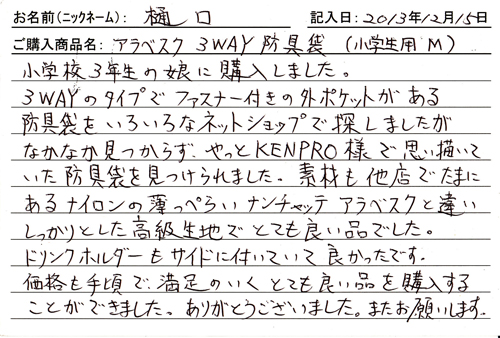 お名前(ニックネーム): 樋口 記入日: 2013年12月15日
ご購入商品名: アラベスク 3WAY 防具袋 (小学生用 M)
小学校3年生の娘に購入しました。
3WAYのタイプでファスナー付きの外ポケットがある
防具袋をいろいろなネットショップで探しましたが
なかなか見つからず、やっとKENPRO様で思い描いて
いた防具袋を見つけられました。素材も他店でたまに
あるナイロンの薄っぺらいナンチャッテ アラベスクと違い
しっかりとした高級生地でとても良い品でした。
ドリンクホルダーもサイドに付いていて良かったです。
価格も手頃で、満足のいくとても良い品を購入する
ことができました。ありがとうございました。またお願いします。